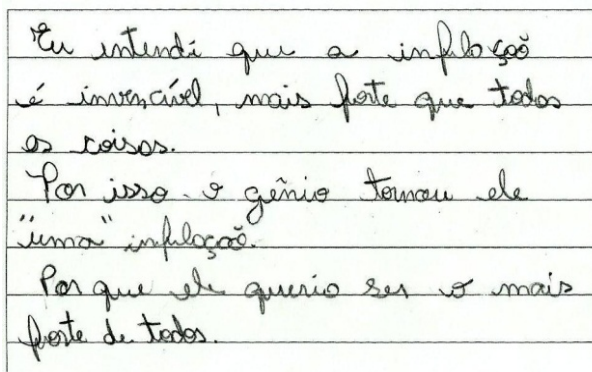 Eu intendi que a infilação
é invencível, mais forte que todas
as coisas.
Por isso o gênio tornou ele
"uma" infilação.
Por que ele queria ser o mais
forte de todos.